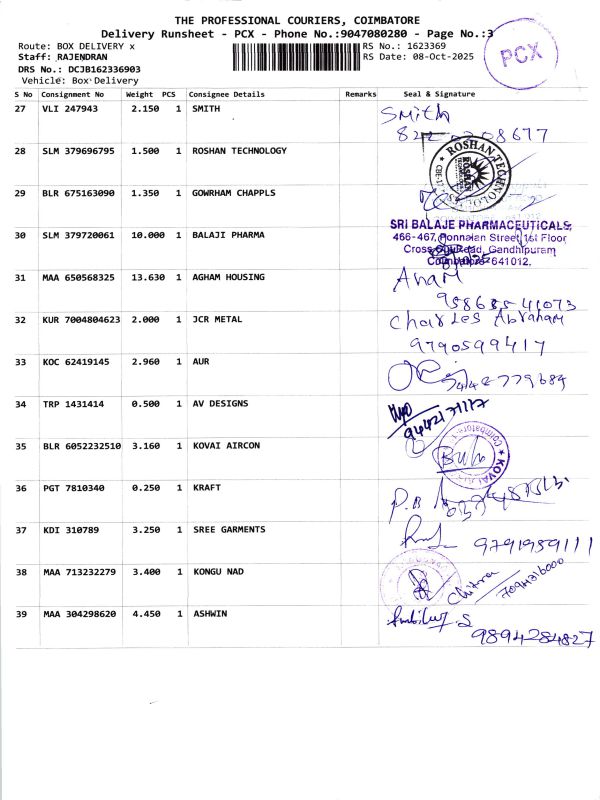 THE PROFESSIONAL COURIERS, COIMBATORE
Delivery Runsheet - PCX - Phone No.:9047080280 - Page No.:3
Route: BOX DELIVERY x RS No.: 1623369
Staff: RAJENDRAN RS Date: 08-Oct-2025
DRS No.: DCJB162336903
Vehicle: Box Delivery
PCX
S No Consignment No Weight PCS Consignee Details Remarks Seal & Signature
27 VLI 247943 2.150 1 SMITH Smith
8677
28 SLM 379696795 1.500 1 ROSHAN TECHNOLOGY ROSHAN TECHNOLOGY
29 BLR 675163090 1.350 1 GOWRHAM CHAPPLS
30 SLM 379720061 10.000 1 BALAJI PHARMA SRI BALAJE PHARMACEUTICALS,
466-467, Ponnaian Street, Ist Floor,
Cross Cut Road, Gandhipuram
Coimbatore-641012.
31 MAA 650568325 13.630 1 AGHAM HOUSING
32 KUR 7004804623 2.000 1 JCR METAL Charles Abraham
9790599417
33 KOC 62419145 2.960 1 AUR
34 TRP 1431414 0.500 1 AV DESIGNS
35 BLR 6052232510 3.160 1 KOVAI AIRCON KOVAI
36 PGT 7810340 0.250 1 KRAFT P.B
37 KDI 310789 3.250 1 SREE GARMENTS 9791959111
38 MAA 713232279 3.400 1 KONGU NAD Chitra
7094216000
39 MAA 304298620 4.450 1 ASHWIN
9894284827